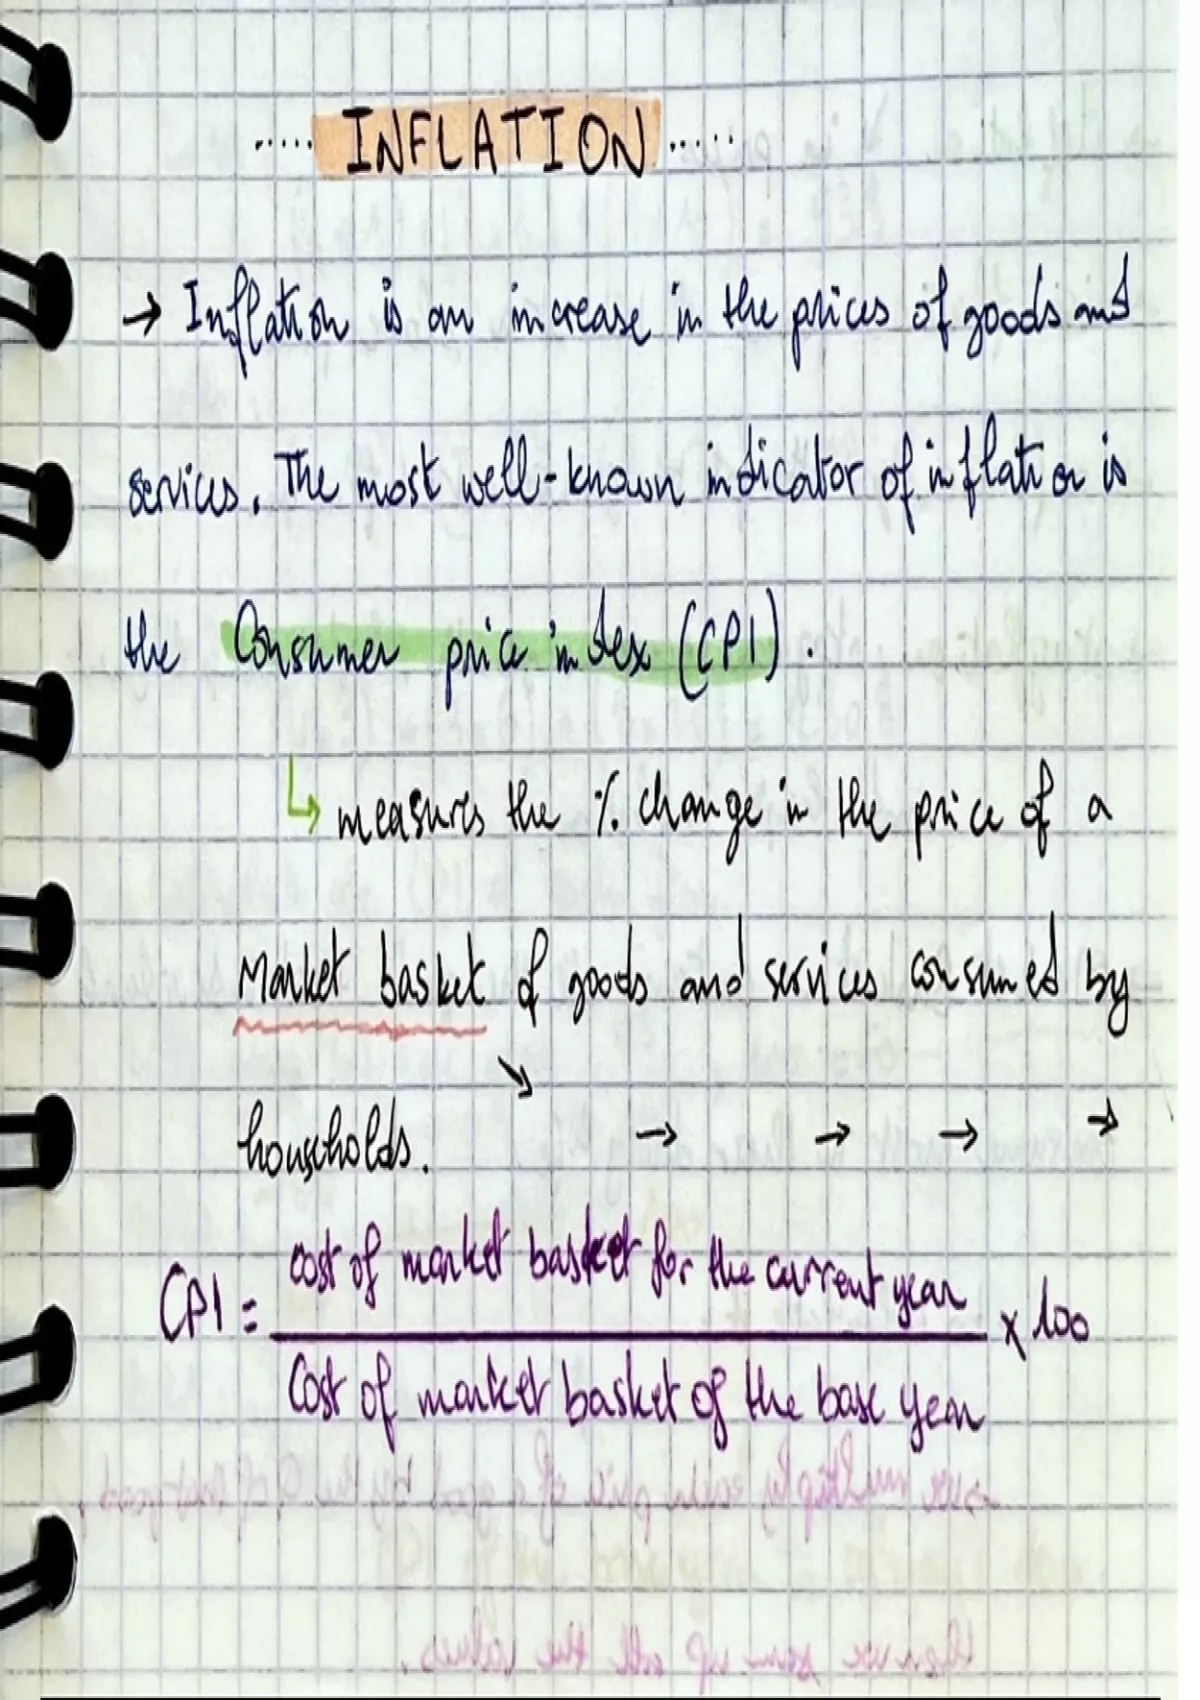 ..... INFLATION .....
→ Inflation is an increase in the prices of goods and
services. The most well-known indicator of inflation is
the Consumer price index (CPI).
↳ measures the % change in the price of a
Market basket of goods and services consumed by
households. ↘ → → → →
cost of market basket for the current year
CPI = ——— x 100
Cost of market basket of the base year